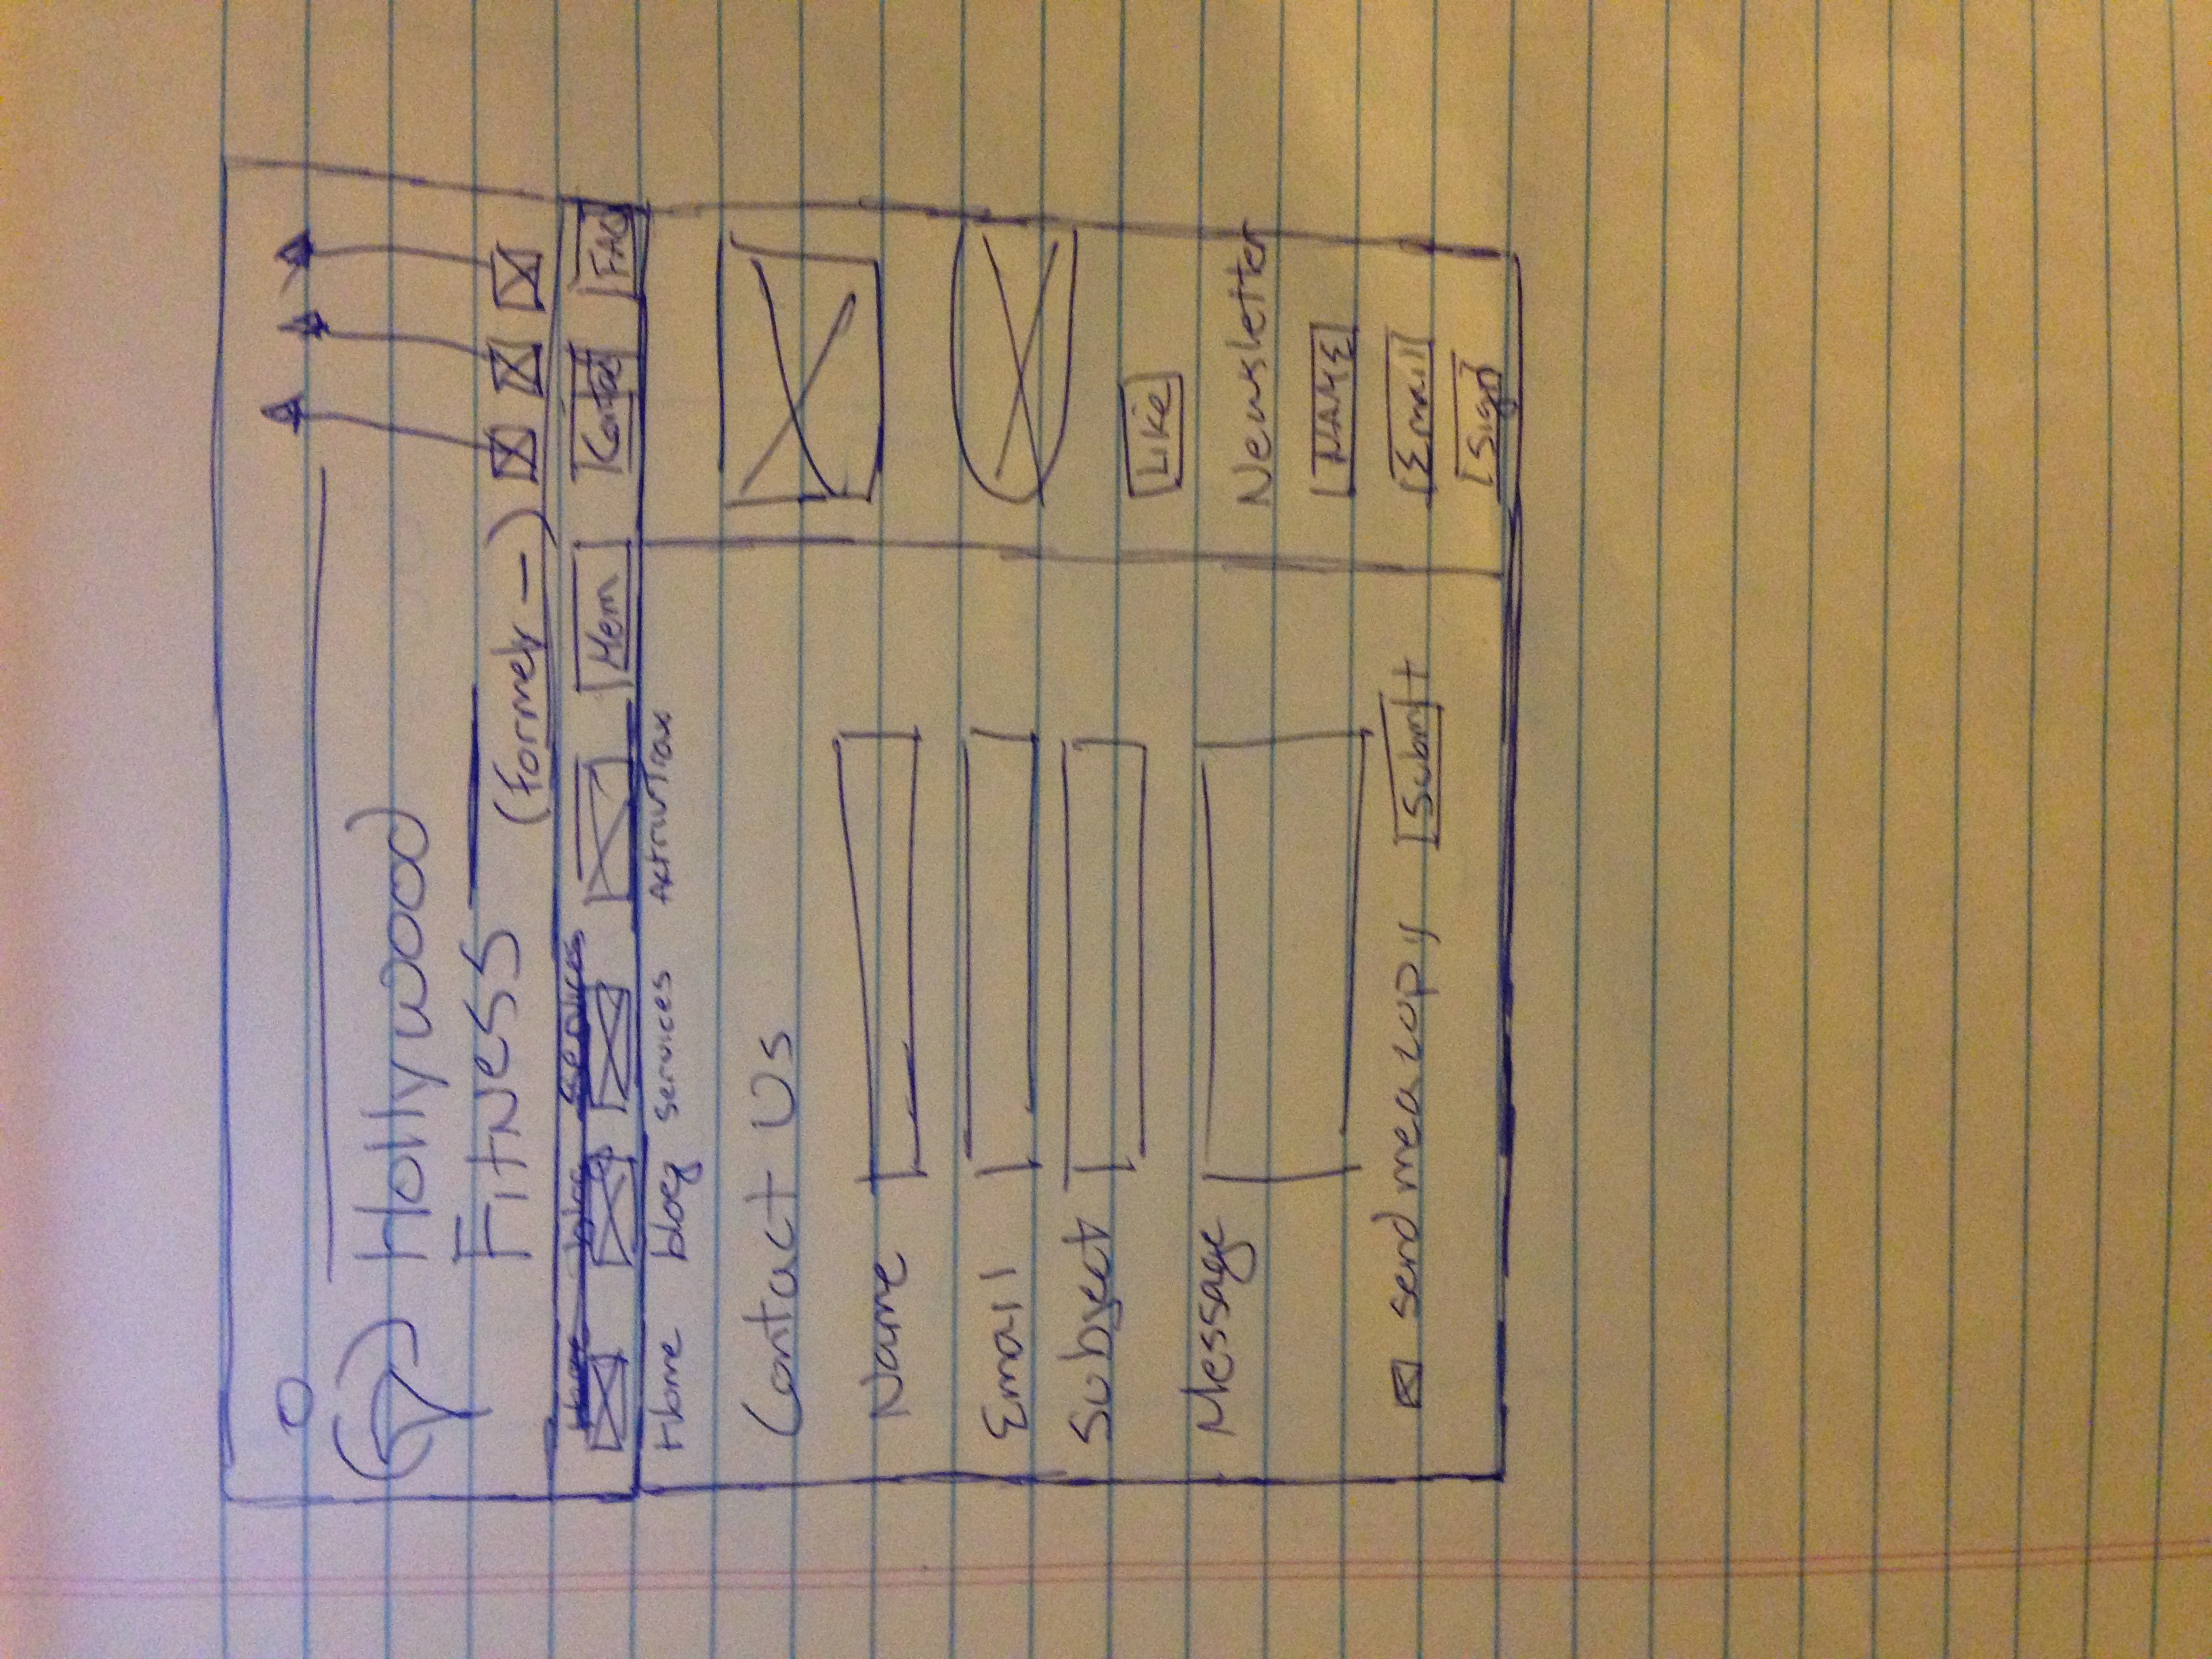 Hollywood
Fitness
(Formerly —)
Home blog Services
Mem Contac FAQ
Home blog Services
Contact Us
Name
Email
Subject
Message
send me a copy Submit
Like
Newsletter
NAME
Email
Sign